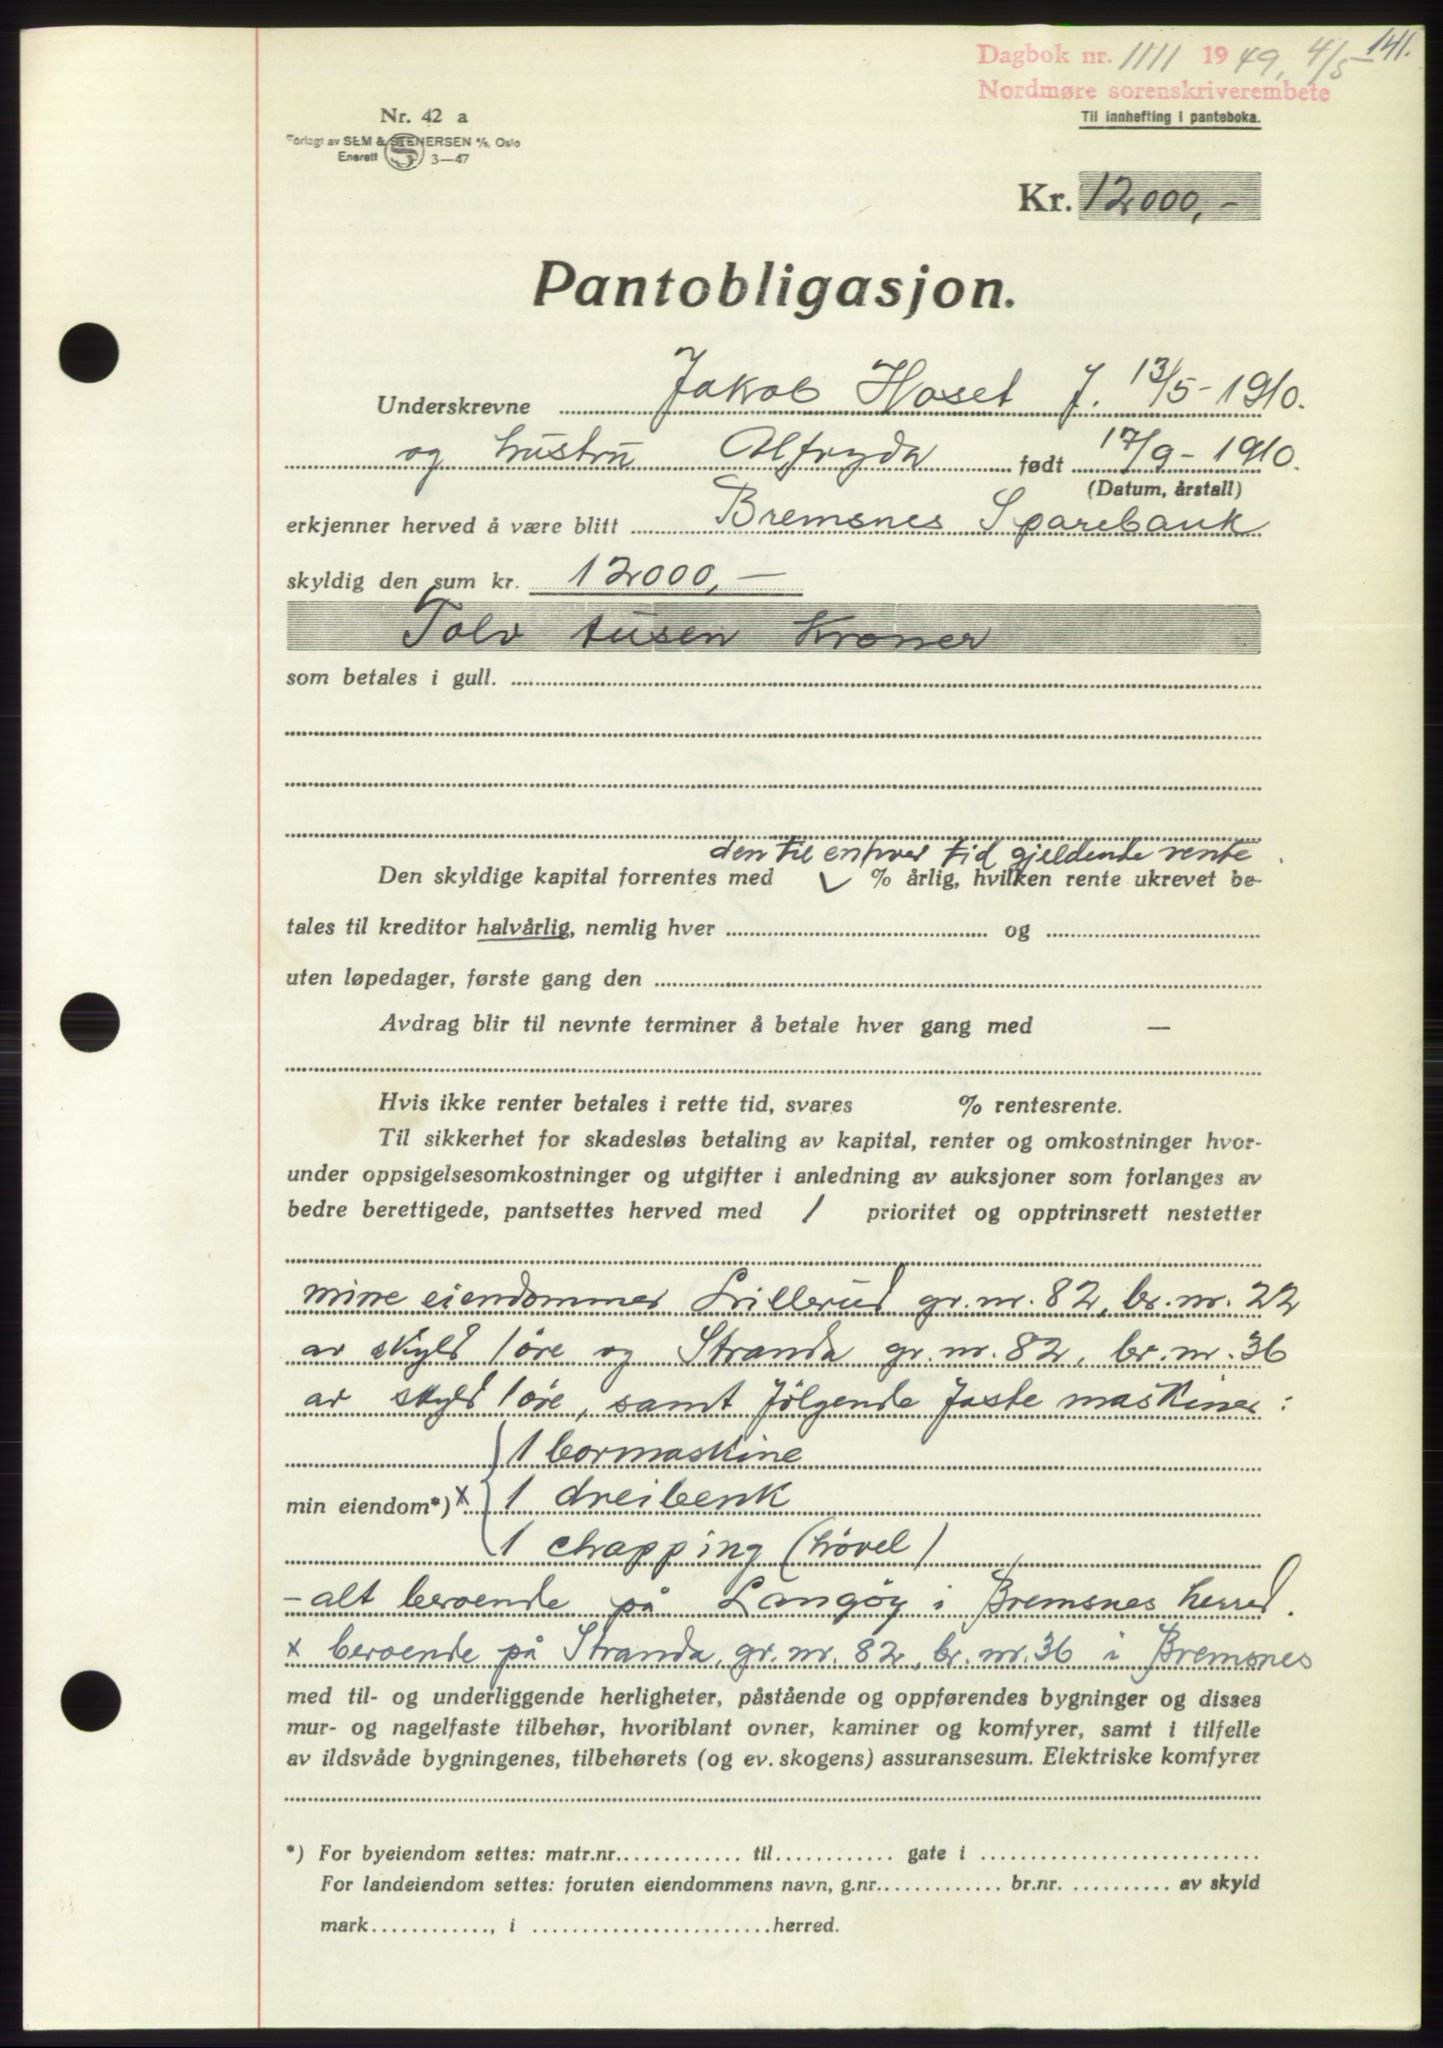 141.
Dagbok nr. 1111 1949, 4/5
Nordmøre sorenskriverembete
Til innhefting i panteboka.
Nr. 42 a
Forlagt av SEM & STENERSEN A/S, Oslo
Enerett S 3—47
Kr. 12000,-
Pantobligasjon.
Underskrevne Jakob Hoset f. 13/5-1910.
og hustru Alfryda født 17/9-1910.
(Datum, årstall)
erkjenner herved å være blitt Bremsnes Sparebank
skyldig den sum kr. 12000,—
Tolv tusen kroner
som betales i gull.
den til enhver tid gjeldende rente.
Den skyldige kapital forrentes med % årlig, hvilken rente ukrevet be-
tales til kreditor halvårlig, nemlig hver og
uten løpedager, første gang den
Avdrag blir til nevnte terminer å betale hver gang med —
Hvis ikke renter betales i rette tid, svares % rentesrente.
Til sikkerhet for skadesløs betaling av kapital, renter og omkostninger hvor-
under oppsigelsesomkostninger og utgifter i anledning av auksjoner som forlanges av
bedre berettigede, pantsettes herved med 1 prioritet og opptrinsrett nestetter
mine eiendommer Lillerud gr.nr. 82, br.nr. 22
av skyld 1 øre og Stranda gr.nr. 82, br.nr. 36
av skyld 1 øre, samt følgende faste maskiner:
1 bormaskine
min eiendom*) x 1 dreibenk
1 chapping (høvel)
- alt beroende på Langøy i Bremsnes herred.
x beroende på Stranda, gr.nr. 82, br.nr. 36 i Bremsnes
med til- og underliggende herligheter, påstående og oppførendes bygninger og disses
mur- og nagelfaste tilbehør, hvoriblant ovner, kaminer og komfyrer, samt i tilfelle
av ildsvåde bygningenes, tilbehørets (og ev. skogens) assuransesum. Elektriske komfyrer
*) For byeiendom settes: matr.nr. til gate i
For landeiendom settes: foruten eiendommens navn, g.nr. br.nr. av skyld
mark, i herred.